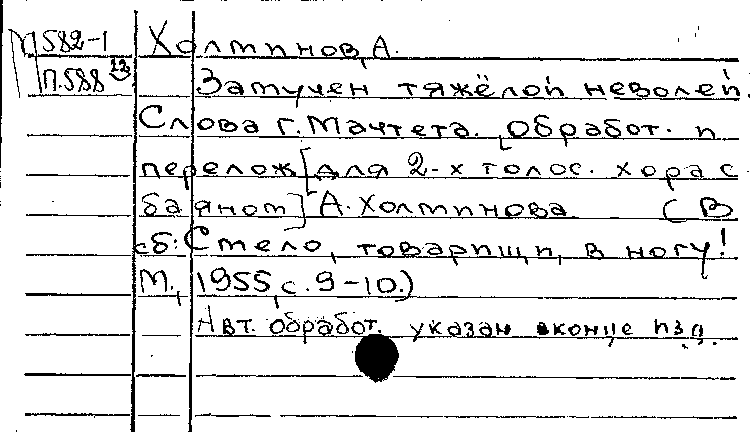 М582-1 Холминов, А.
П.588 23 Замучен тяжёлой неволей.
Слова Г. Мачтета. [Обработ. и
перелож [для 2-х голос. хора с
баяном] А. Холминова (В
сб: Смело, товарищи, в ногу!
М., 1955, с. 9-10.)
Авт. обработ. указан в конце изд.